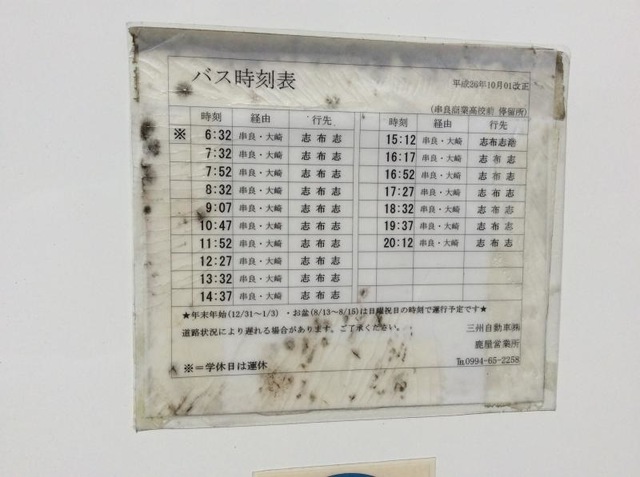 バス時刻表
平成26年10月01改正
(串良商業高校前 停留所)
時刻 経由 行先
※ 6:32 串良・大崎 志布志
7:32 串良・大崎 志布志
7:52 串良・大崎 志布志
8:32 串良・大崎 志布志
9:07 串良・大崎 志布志
10:47 串良・大崎 志布志
11:52 串良・大崎 志布志
12:27 串良・大崎 志布志
13:32 串良・大崎 志布志
14:37 串良・大崎 志布志
時刻 経由 行先
15:12 串良・大崎 志布志港
16:17 串良・大崎 志布志
16:52 串良・大崎 志布志
17:27 串良・大崎 志布志
18:32 串良・大崎 志布志
19:37 串良・大崎 志布志
20:12 串良・大崎 志布志
★年末年始(12/31～1/3)・お盆(8/13～8/15)は日曜祝日の時刻で運行予定です★
道路状況により遅れる場合があります。ご了承ください。
三州自動車㈱
鹿屋営業所
※＝学休日は運休
℡0994-65-2258